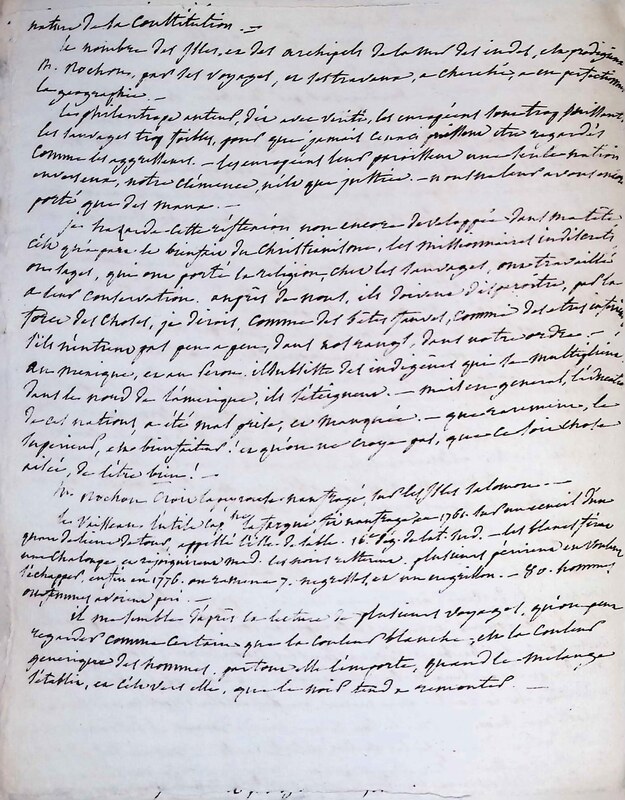 nature de la Constitution. —
le nombre des isles, et des archipels de la mer des indes, est prodigieux
M. Rochon, par ses voyages, et ses travaux, a cherché, a en perfectionner
la geographie. —
Ce philantrope auteur, dit avec verité, les européens sont trop puissant,
les sauvages trop foibles, pour que jamais ceux ci puissent etre regardés
comme les aggresseurs. — les européens leur paroissent une seule nation
envers eux, notre clémence, n'est que justice. — nous ne leur avons encore
porté que des maux. —
je hazarde cette réflexion non encore developpée dans ma tête
c'est que par le bienfait du Christianisme, les missionnaires indiscrets
ou sages, qui ont porté la religion chez les sauvages, ont travaillé
a leur conservation. auprès de nous, ils doivent disparoître, par la
force des choses, je dirois, comme des bêtes fauves, comme des etres
s'ils n'entrent pas peu a peu, dans nos rangs, dans notre ordre. —
au mexique, et au perou, il subsiste des indigènes qui se multiplient
dans le nord de l'amérique, ils s'éteignent. — mais en general,
de ces nations, a été mal prise, et manquée. — que rarement, le
superieur, est bienfaiteur! et qu'on ne croye pas, que ce soit chose
aisée, de l'être bien! —
M. Rochon croit la peyrouse naufragé, sur les isles salomon. —
le Vaisseau l'utile Cap.ne la fargue fit naufrage en 1761. sur un ecueil d'un
quart de lieue de tour, appellé l'isle de sable. 16e deg. de lat. sud. — les blancs firent
une chaloupe, et rejoignirent mad. les noirs resterent. plusieurs périrent en voulant
s'échapper, enfin en 1776. on ramena 7. negresses, et un negrillon. — 80. hommes
ou femmes avoient peri. —
il me semble d'après la lecture de plusieurs voyages, qu'on peut
regarder comme certain que la couleur blanche, est la couleur
generique des hommes, partout elle l'emporte, quand le melange
s'établit, et c'est vers elle, que le noir tend a remonter. —